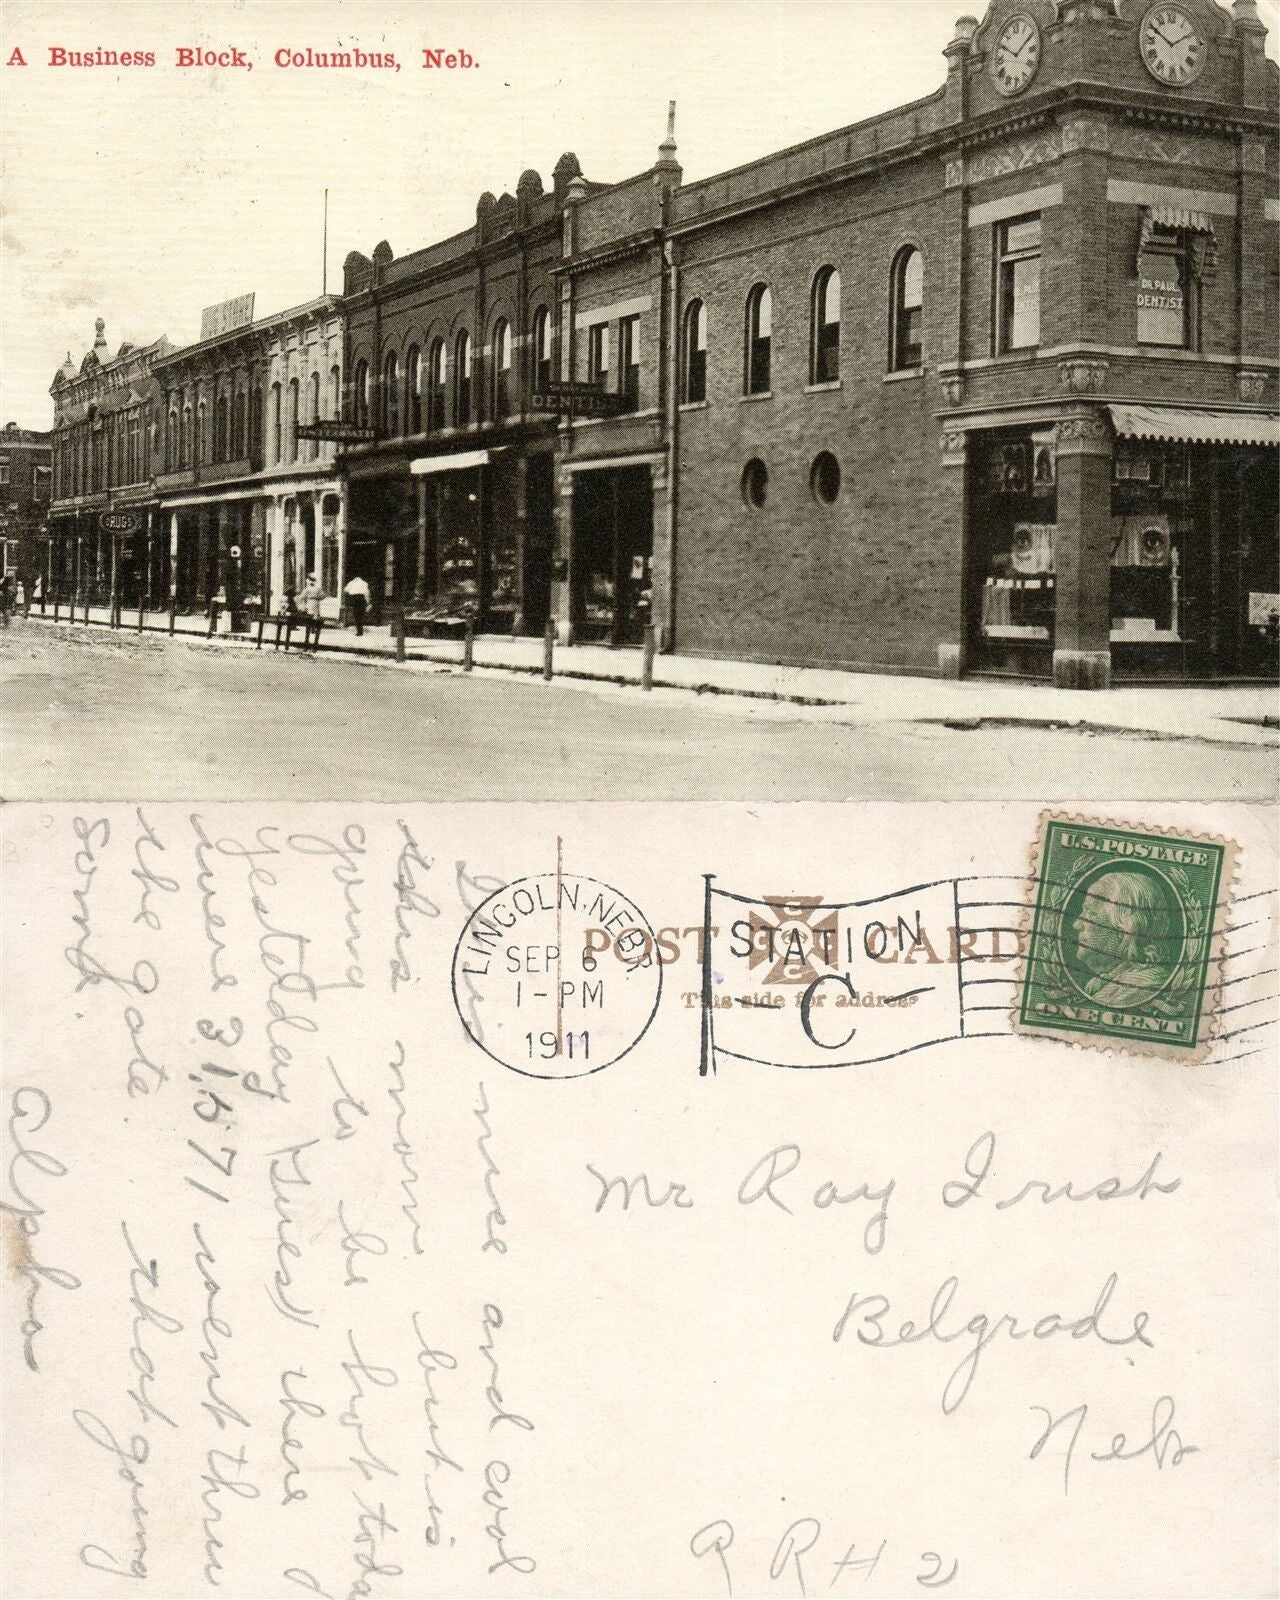 A Business Block, Columbus, Neb.
DR. PAUL
DENTIST
DENTIST
DRUGS
POST CARD
This side for address
LINCOLN, NEBR.
SEP 6
1-PM
1911
STATION
C
U.S. POSTAGE
ONE CENT
Mr Ray Irish
Belgrade
Neb
R R # 2
It is nice and cool
this morn but is
going to be hot today
yesterday (Tues) there
were 31,571 went thru
the gate. that going
some.
Alpha